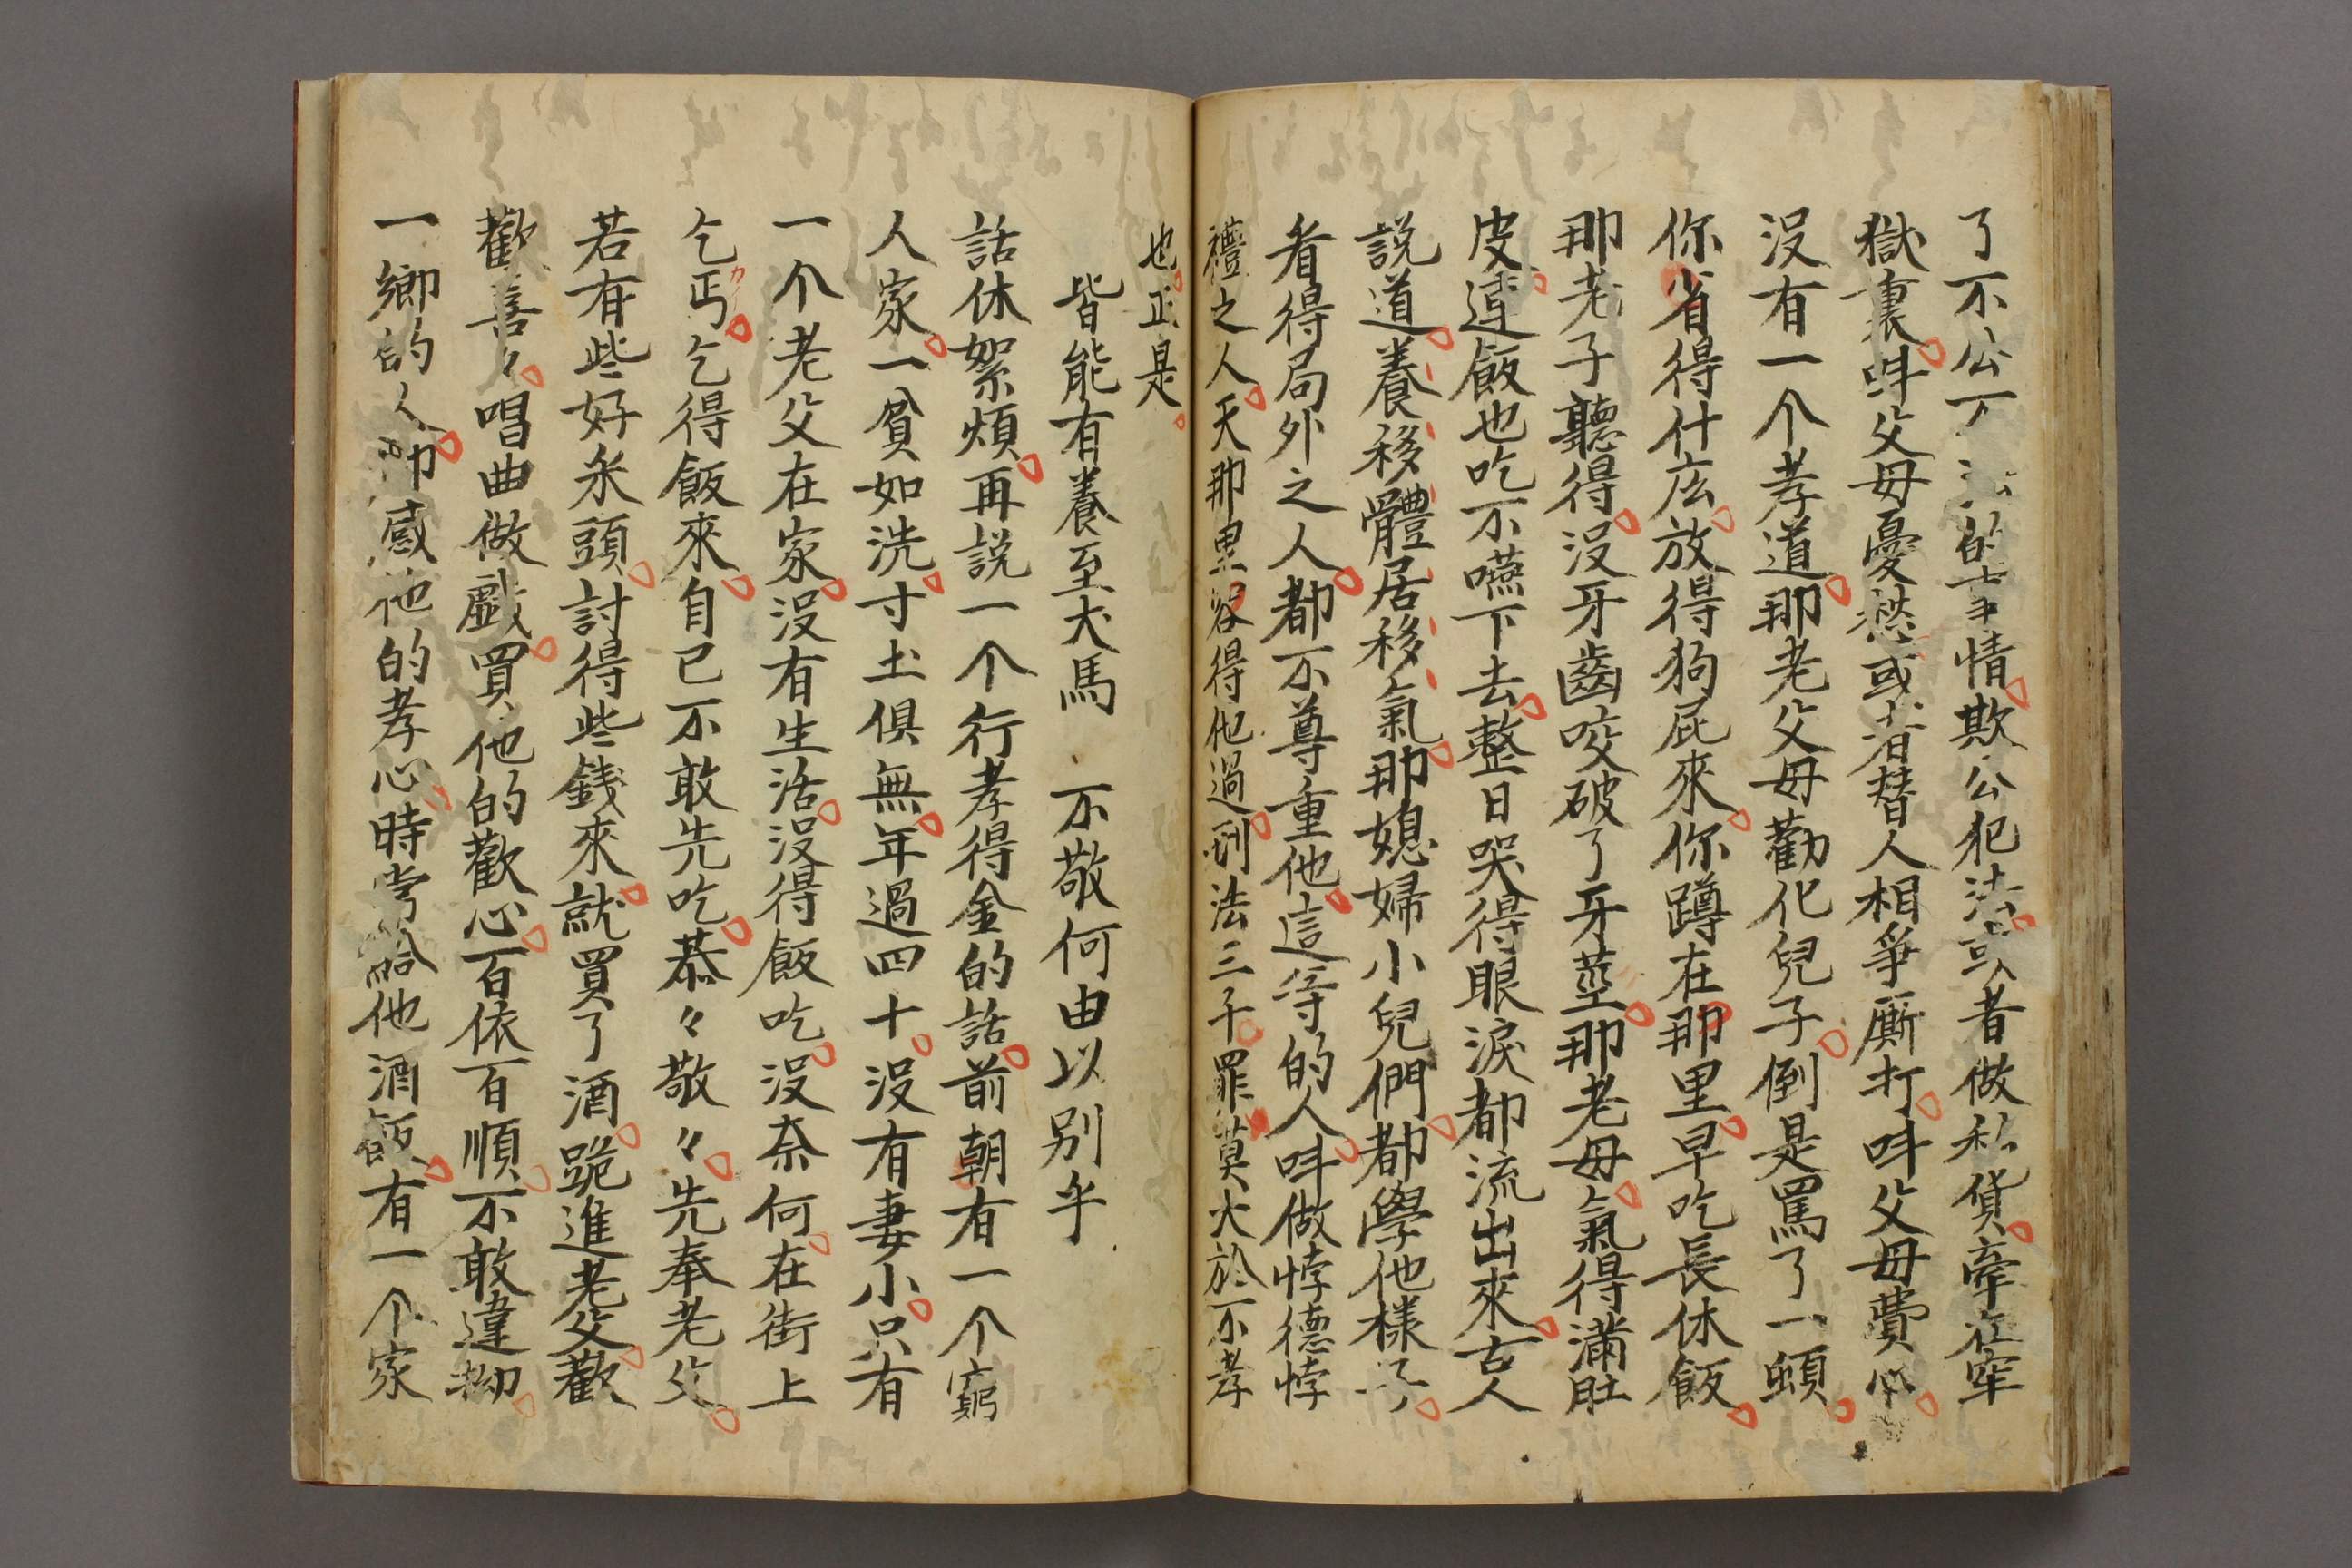 了不公不法的事情欺公犯法或者做私貨牽在窂
獄裏呌父母憂愁或者替人相爭厮打呌父母費心
没有一个孝道那老父母勸化兒子倒是罵了一頓
你省得什庅放得狗屁來你蹲在那里早吃長休飯
那老子聽得没牙齒咬破了牙莖那老母氣得滿肚
皮連飯也吃不嚥下去整日哭得眼淚都流出來古人
説道養移體居移氣那媳婦小兒們都學他樣子
看得局外之人都不尊重他這等的人呌做悖德悖
禮之人天那里容得他過到法三千罪莫大於不孝
也正是
皆能有養至犬馬 不敬何由以別乎
話休絮煩再説一个行孝得金的話前朝有一个窮
人家一貧如洗寸土俱無年過四十没有妻小只有
一个老父在家没有生活没得飯吃没奈何在街上
乞丐乞得飯來自己不敢先吃恭々敬々先奉老父
若有些好柴頭討得些錢來就買了酒跪進老父歡
歡喜々唱曲做戲買他的歡心百依百順不敢違拗
一鄉的人卽感他的孝心時常給他酒飯有一个家